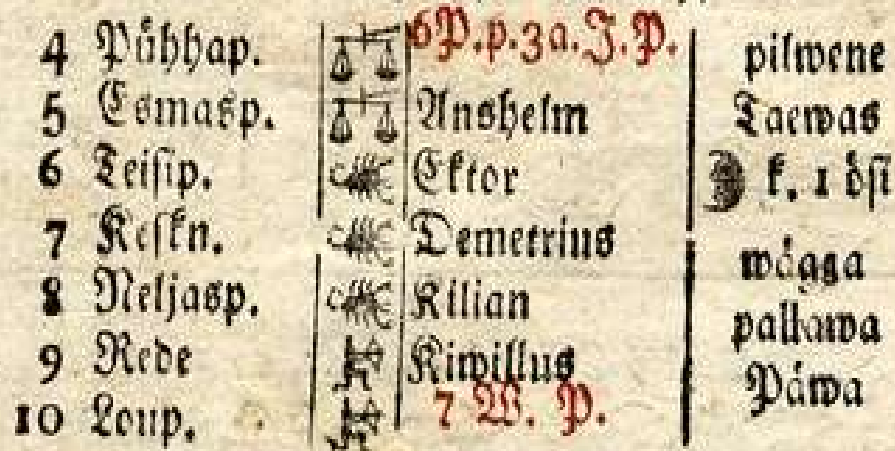 4 Pühhap. 6 P. p. 3a. J. P. pilwene
5 Esmasp. Anshelm Taewas
6 Teisip. Ektor k. 1 ösi
7 Keskn. Demetrius wägga
8 Neljasp. Kilian pallawa
9 Rede Kiwillus Päwa
10 Loup. 7 W. P.